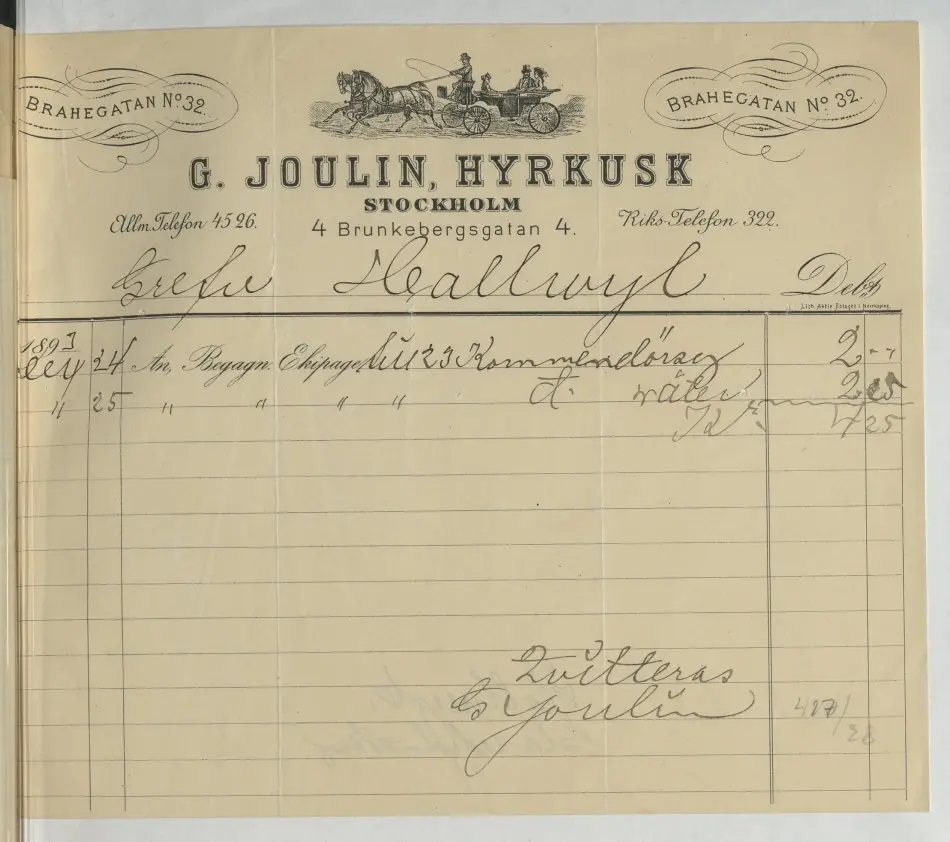 BRAHEGATAN No 32.
BRAHEGATAN No 32.
G. JOULIN, HYRKUSK
STOCKHOLM
Allm. Telefon 4526.
4 Brunkebergsgatan 4.
Riks-Telefon 322.
Grefve Hallwyl Debt
Lith. Aktie Bolaget i Norrköping
1893
24 An, Begagn. Ekipage, till 23 Kommendörsg 2 --
" 25 " " " " d: 2 25
Kr 4 25
Qvitteras
G Joulin
417/28